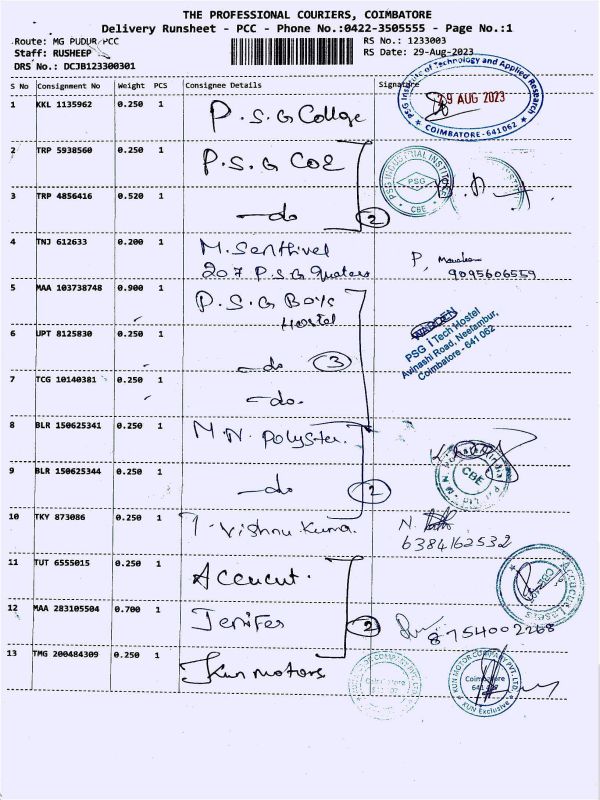 THE PROFESSIONAL COURIERS, COIMBATORE
Delivery Runsheet - PCC - Phone No.:0422-3505555 - Page No.:1
Route: MG PUDUR PCC
RS No.: 1233003
Staff: RUSHEEP
RS Date: 29-Aug-2023
DRS No.: DCJB123300301
S No Consignment No Weight PCS Consignee Details Signature
1 KKL 1135962 0.250 1 P.S.G College
PSG Institute of Technology and Applied Research
29 AUG 2023
★ COIMBATORE-641 062 ★
2 TRP 5938560 0.250 1 P.S.G COE
PSG INDUSTRIAL INSTITUTE
PSG
CBE
3 TRP 4856416 0.520 1 -do 2
4 TNJ 612633 0.200 1 M. Senthivel
207 P.S.G Quaters
P,
9095606559
5 MAA 103738748 0.900 1 P.S.G Boys
Hostel
WARDEN
PSG iTech Hostel
Avinashi Road, Neelambur,
Coimbatore - 641 062
6 UPT 8125830 0.250 1 -do 3
7 TCG 10140381 0.250 1 -do.
8 BLR 150625341 0.250 1 M.N. Polyster.
9 BLR 150625344 0.250 1 -do 2
CBE
10 TKY 873086 0.250 1 T. Vishnu Kuma
N.
6384162532
11 TUT 6555015 0.250 1 Accucut.
CBE
12 MAA 283105504 0.700 1 Jenifer 2
8754002268
13 TMG 200484309 0.250 1 Kun motors
Coimbatore
KUN MOTOR COMPANY PVT. LTD.
Coimbatore
KUN Exclusive